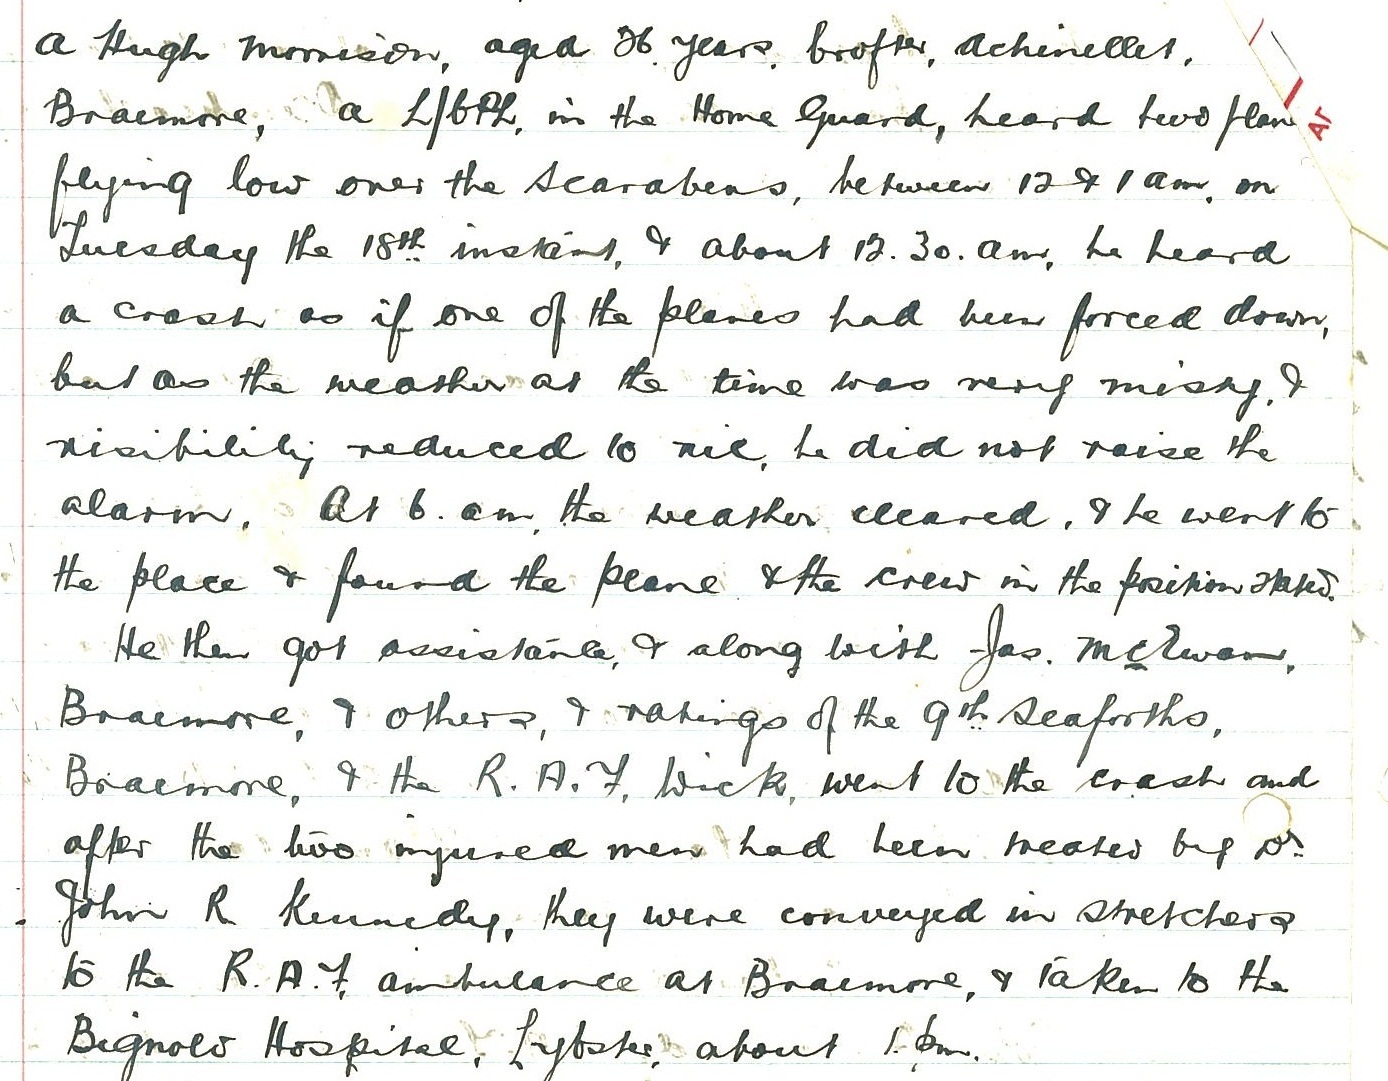 A Hugh Morrison, aged 36 years, Crofter, Achinellet,
Braemore, a L/Cpl, in the Home Guard, heard two plan
flying low over the Scarabens, between 12 & 1 am, on
Tuesday the 18th instant, & about 12.30. am, he heard
a crash as if one of the planes had been forced down,
but as the weather at the time was very misty, &
visibility reduced to nil, he did not raise the
alarm. At 6. am, the weather cleared, & he went to
the place & found the plane & the crew in the position stated.
He then got assistance, & along with Jas. McEwan,
Braemore, & others, & ratings of the 9th Seaforths,
Braemore, & the R.A.F, Wick, went to the crash and
after the two injured men had been treated by Dr.
John R Kennedy, they were conveyed in stretchers
to the R.A.F, ambulance at Braemore, & taken to the
Bignold Hospital, Lybster, about 1. pm.